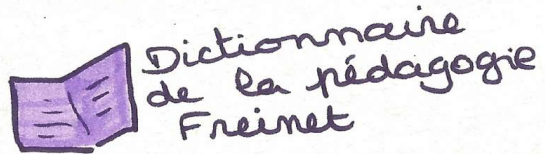 Dictionnaire
de la pédagogie
Freinet